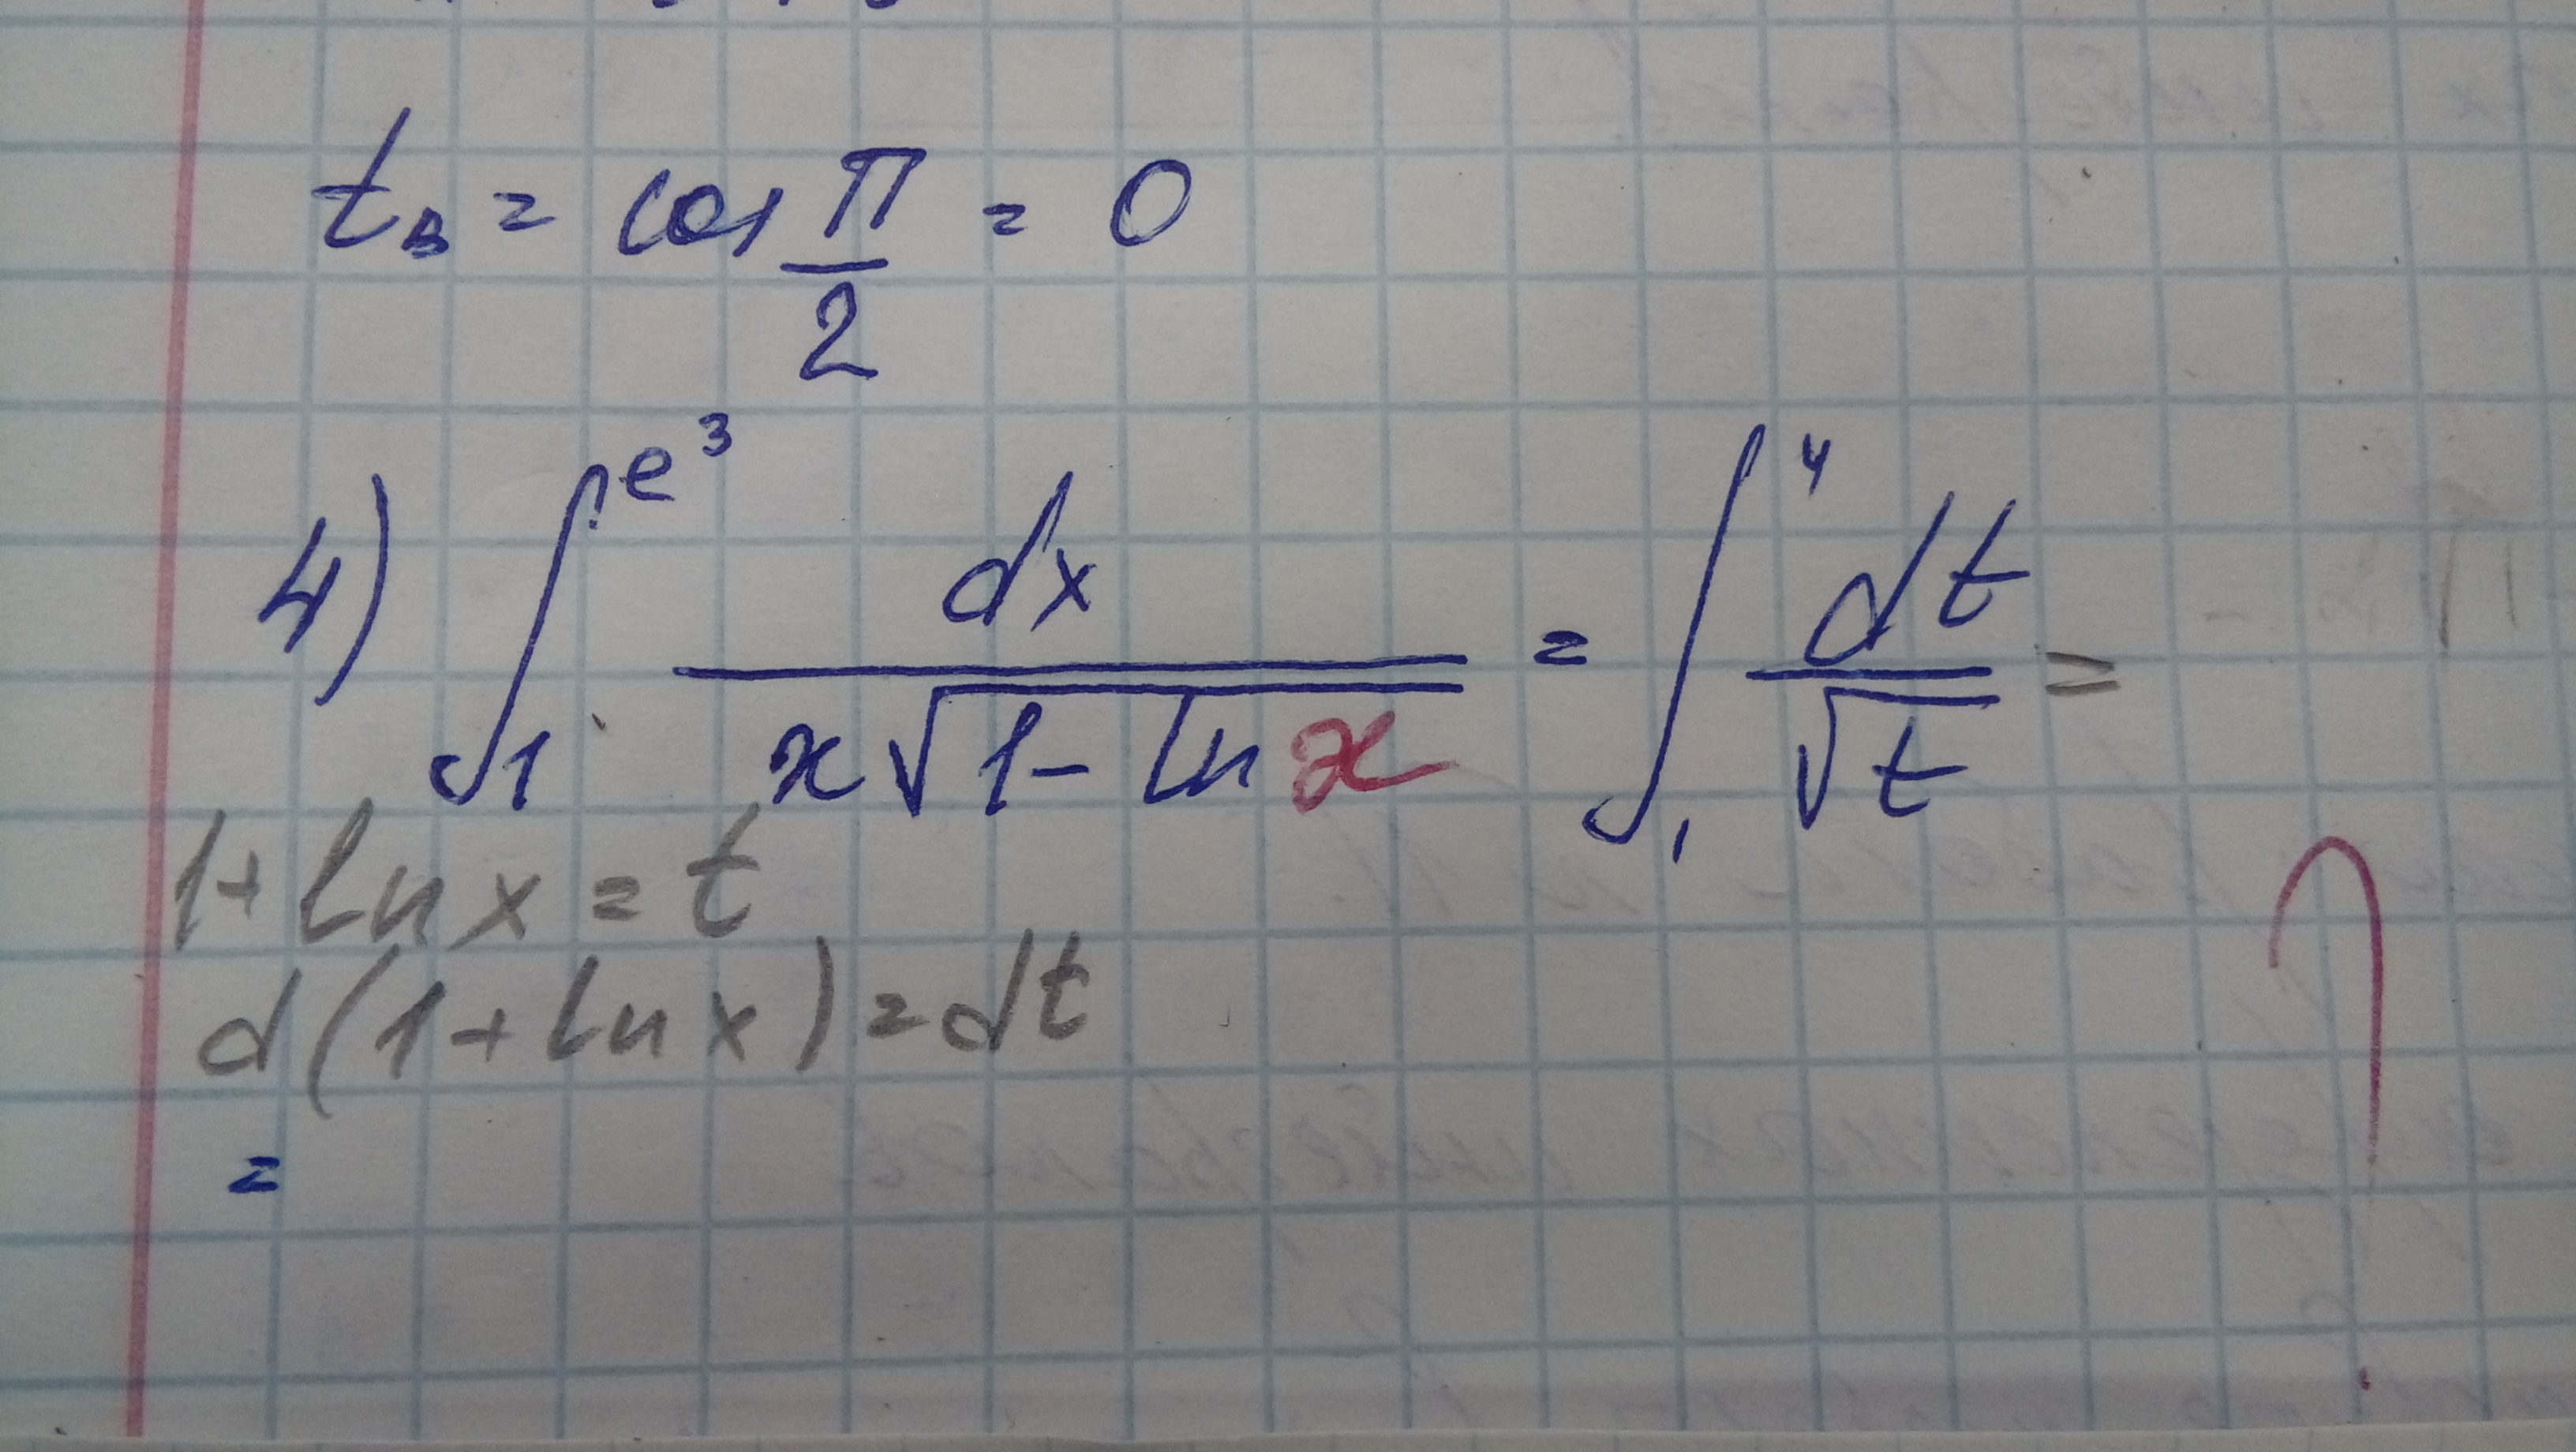 t_в = cos π/2 = 0
4) ∫_1^{e^3} dx / (x√(1 - ln x)) = ∫_1^4 dt / √t =
1 + ln x = t
d(1 + ln x) = dt
=
?